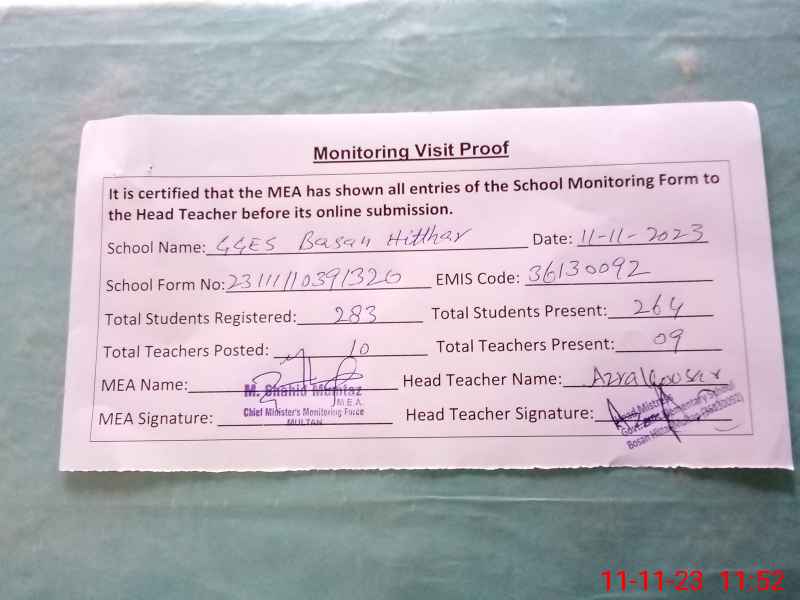 Monitoring Visit Proof
It is certified that the MEA has shown all entries of the School Monitoring Form to
the Head Teacher before its online submission.
School Name: GGES Basan Hitthar Date: 11-11-2023
School Form No: EMIS Code: 36130092
Total Students Registered: 283 Total Students Present: 264
Total Teachers Posted: 10 Total Teachers Present: 09
MEA Name: M. Shahid Mumtaz Head Teacher Name:
M.E.A.
MEA Signature: Chief Minister's Monitoring Force Head Teacher Signature: Head Mistress
MULTAN
Govt. Elementary School
Bosan (36130092)
11-11-23 11:52